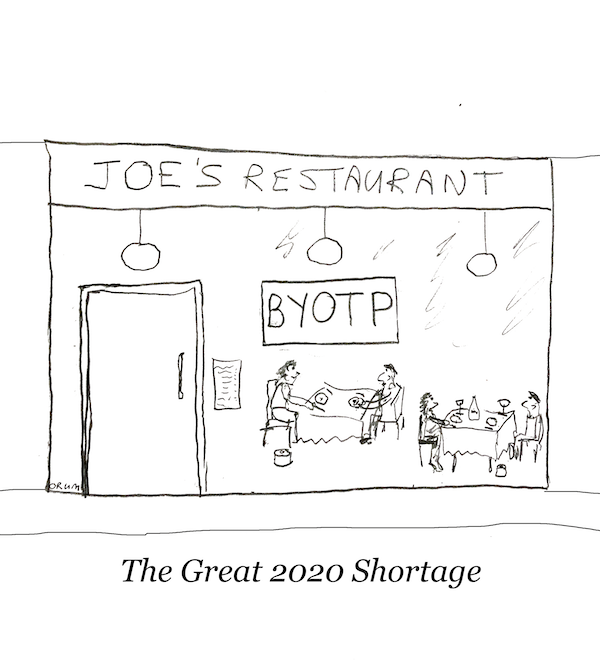 JOE'S RESTAURANT
BYOTP
ORUM
The Great 2020 Shortage